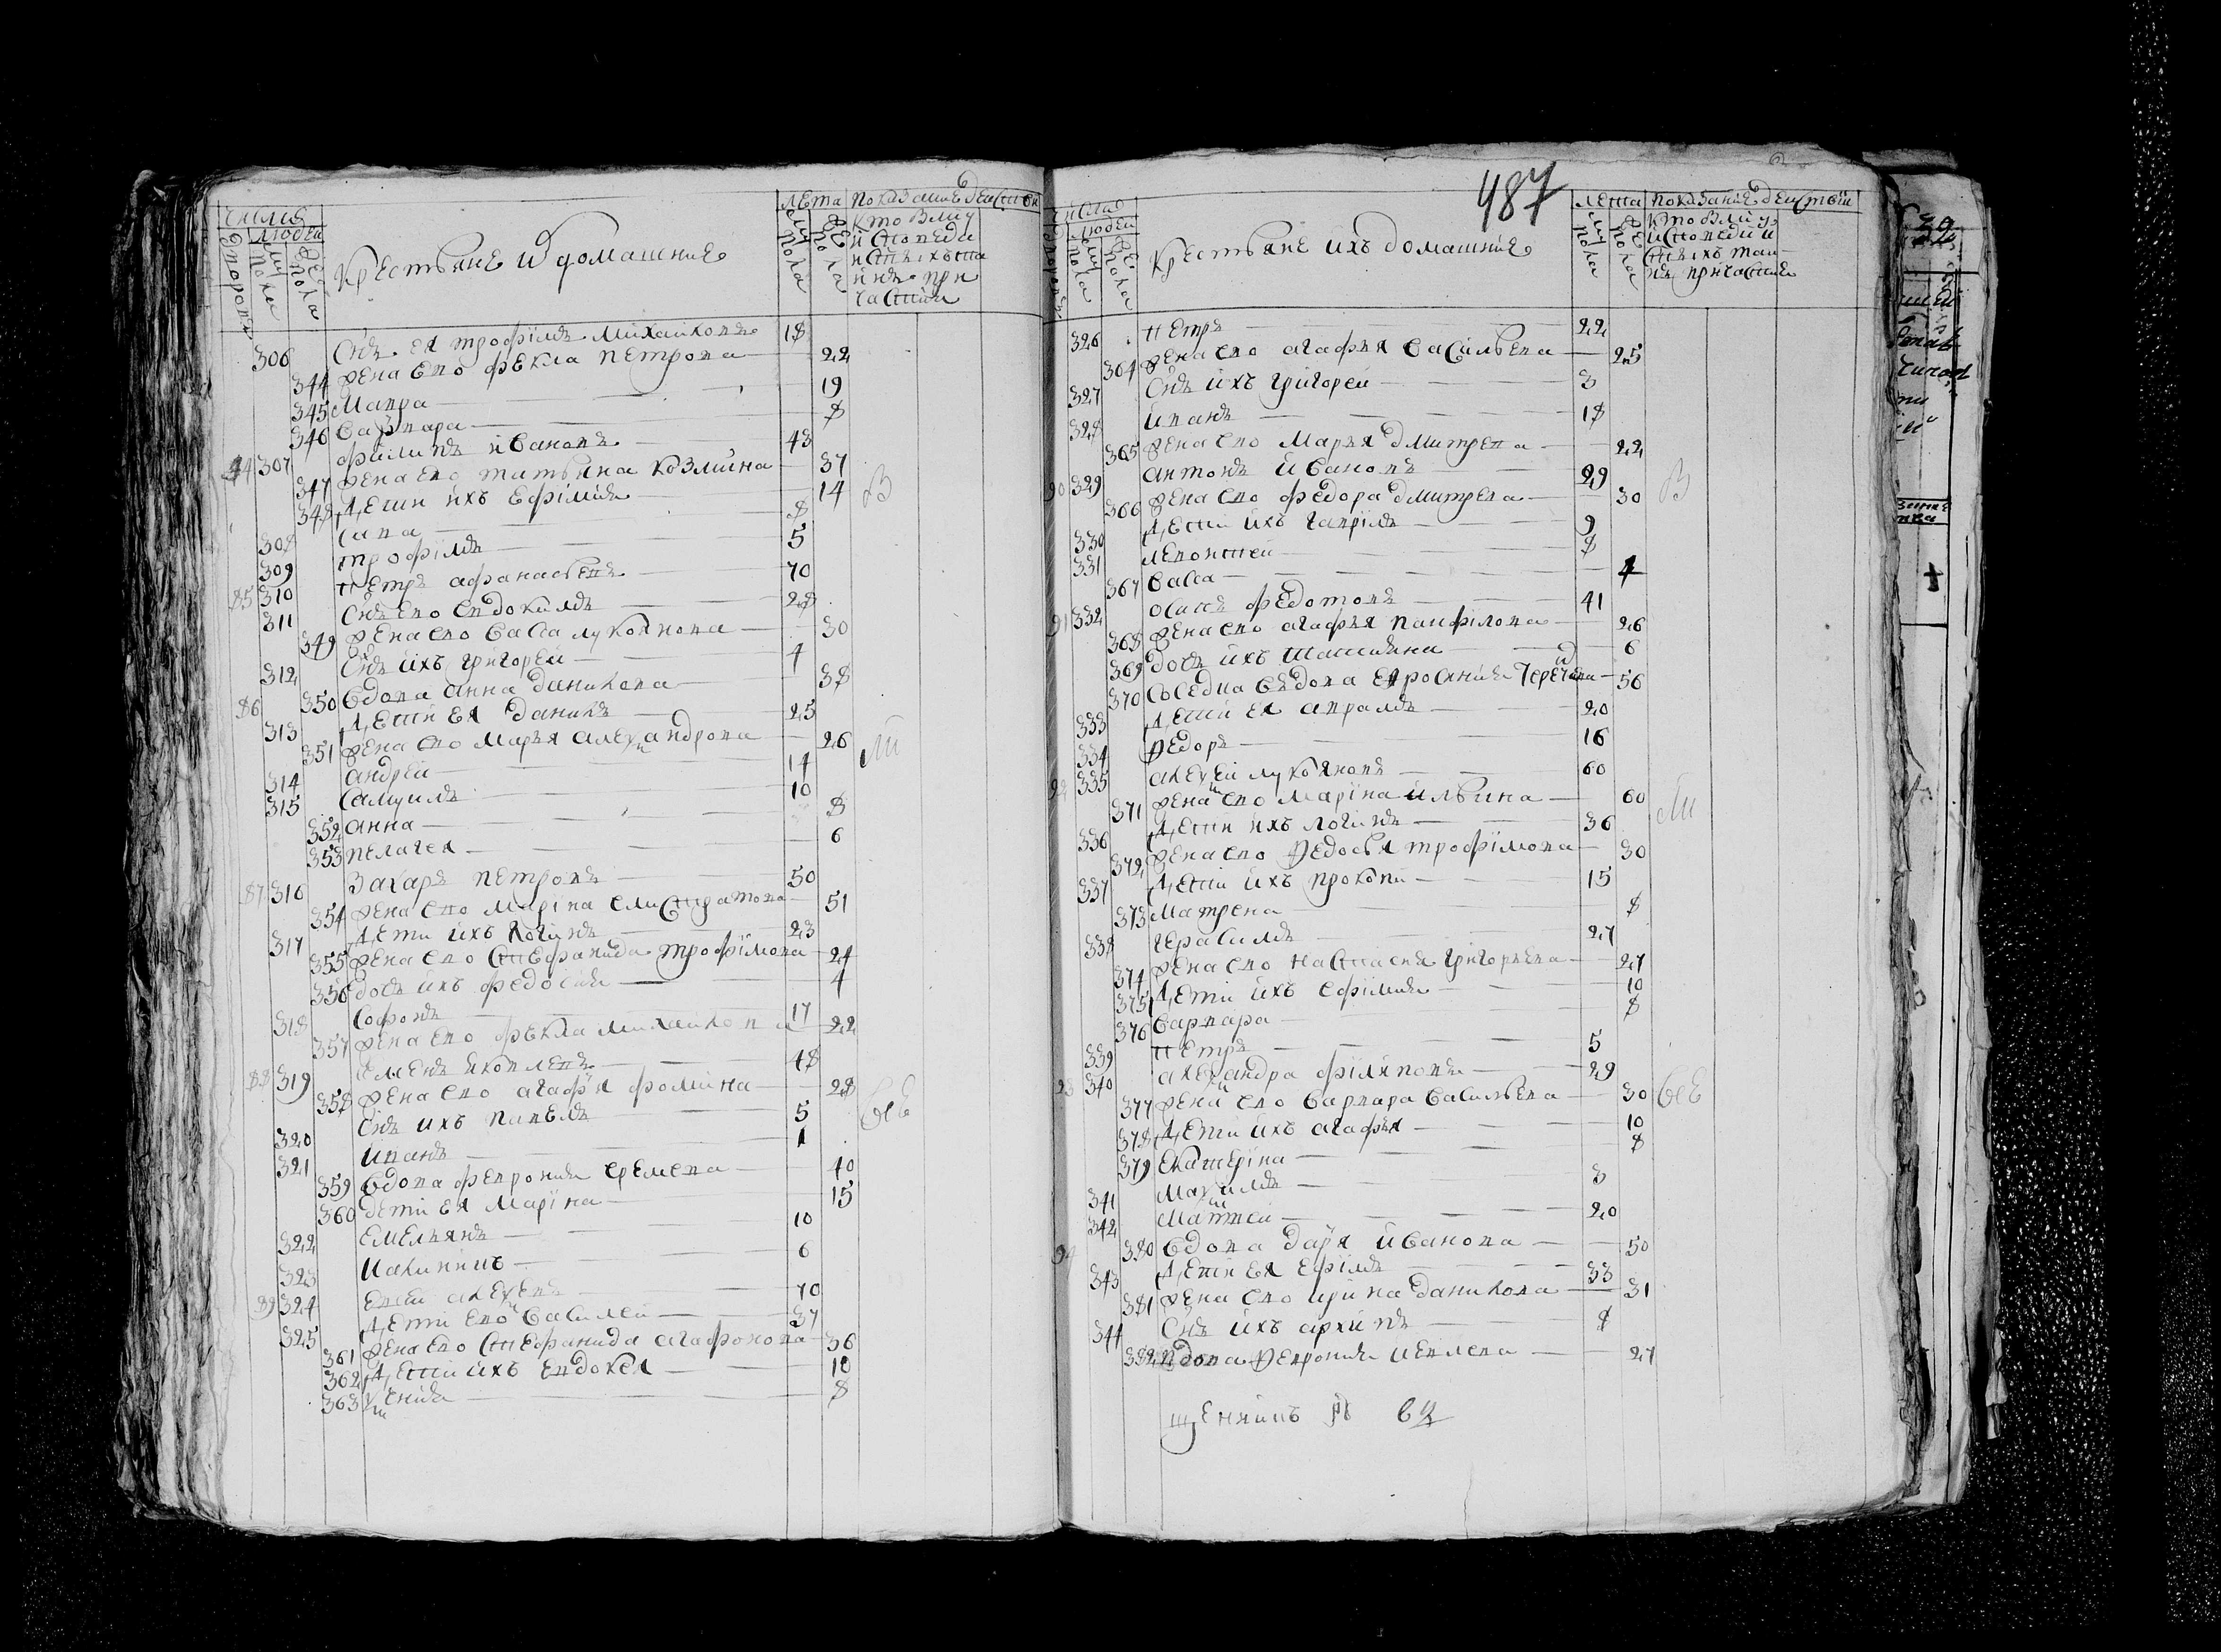 числа
людеи
дворовъ
му пола
же пола
крестьяне и домашние
лета
му пола
же пола
показание деиств
кто былъ у исповеди и стыхъ таинъ причастия
306 Снъ ея трофiмъ михаиловъ 18
344 жена ево фекла петрова 22
345 Мавра 19
346 варвара 8
84 307 филипъ iвановъ 43
347 жена ево татьяна козмина 37
348 дети ихъ ефiмия 14 В
308 сава 8
309 трофiмъ 5
85 310 петръ афанасьевъ 70
311 Снъ ево евдокимъ 28
349 жена ево васа лукоянова 30
312 Снъ ихъ григореи 4
86 350 вдова анна данилова 38
313 дети ея данила 25
351 жена ево марья александрова 26
314 андреи 14
315 самуилъ 10
352 анна 8
353 пелагея 6
87 316 захаръ петровъ 50
354 жена ево марiна елистратова 51
317 дети ихъ логинъ 23
355 жена ево стефанида трофiмова 24
356 дочь ихъ федосия 4
318 софонъ 17
357 жена ево фекла михаилова 22
88 319 семенъ яковлевъ 48
358 жена ево агафья фомина 28
320 Снъ ихъ павелъ 5
321 иванъ 1
359 вдова феврония еремева 40
360 дети ея марiна 15
322 емельянъ 10
323 иакинпъ 6
89 324 евсеи алексеевъ 70
325 дети ево василеи 37
361 жена ево стефанида агафонова 36
362 дети ихъ евдокея 10
363 ксения 8
487
числа
людеи
дворовъ
му пола
же пола
крестьяне ихъ домашние
лета
му пола
же пола
показание деиствъ
кто былъ у исповеди и стыхъ таинъ причастия
326 петръ 22
364 жена ево агафья васильева 25
327 Снъ ихъ григореи 3
328 иванъ 18
365 жена ево марья дмитрева 22
90 329 антонъ ивановъ 29
366 жена ево федора дмитрева 30 В
330 дети ихъ гаврiлъ 9
331 леонтеи 8
367 васа 4
91 332 осипъ федотовъ 41
368 жена ево агафья панфiлова 26
369 дочь ихъ татияна 6
370 соседка вдова ефросиния 56
333 дети ея аврамъ 20
334 федоръ 16
92 335 алексеи лукояновъ 60
371 жена ево марiна ильина 60
336 дети ихъ логинъ 36
372 жена ево федосья трофiмова 30
337 дети ихъ прокопи 15
373 матрена 8
338 герасимъ 27
374 жена ево настасия григорьева 27
375 дети ихъ ефiмия 10
376 варвара 8
339 петръ 5
93 340 александра фiлиповъ 29
377 жена ево варвара васильева 30
378 дети ихъ агафья 10
379 екатерiна 8
341 максимъ 3
342 матвеи 20
94 380 вдова дарья иванова 50
343 дети ея ефiмъ 33
381 жена ево ирина данилова 31
344 Снъ ихъ архипъ 8
382 вдова феврония иевлева 27
щенникъ